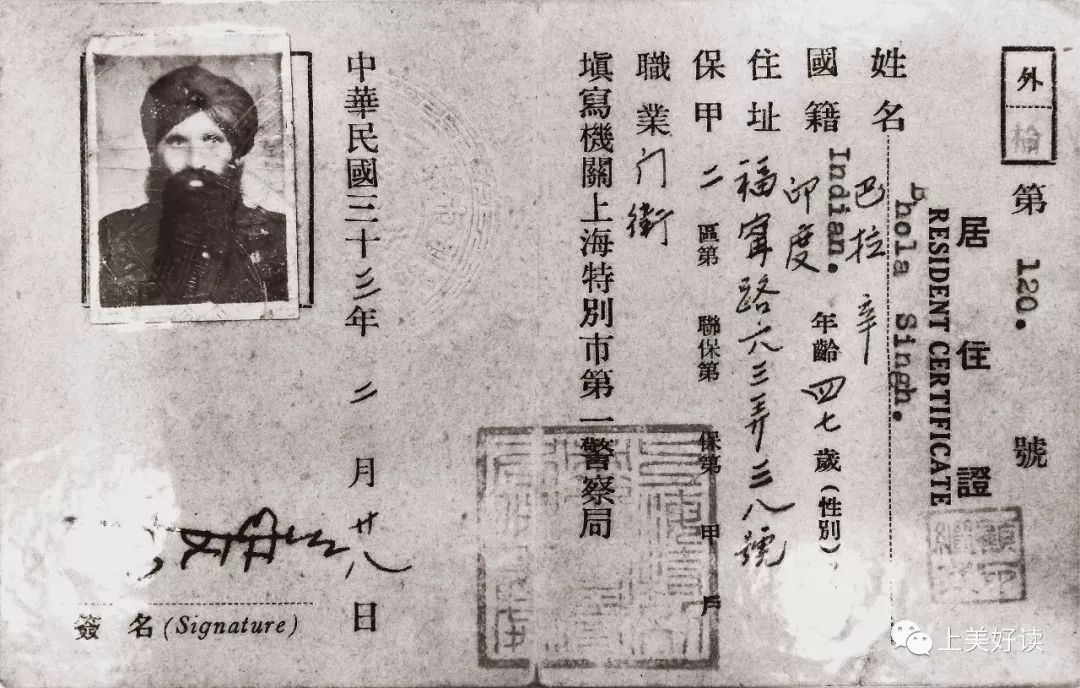 外
檢
第 120. 號
居住證
RESIDENT CERTIFICATE
姓名 巴拉辛
Bhola Singh.
國籍 印度 年齡 四七 歲(性別)
Indian.
住址 福寗路六三弄三八號
保甲 二 區第 聯保第 保第 甲 戶
職業 门衛
塡寫機關上海特別市第一警察局
中華民國三十三年 二 月 廿八 日
簽 名 (Signature)
上美好读